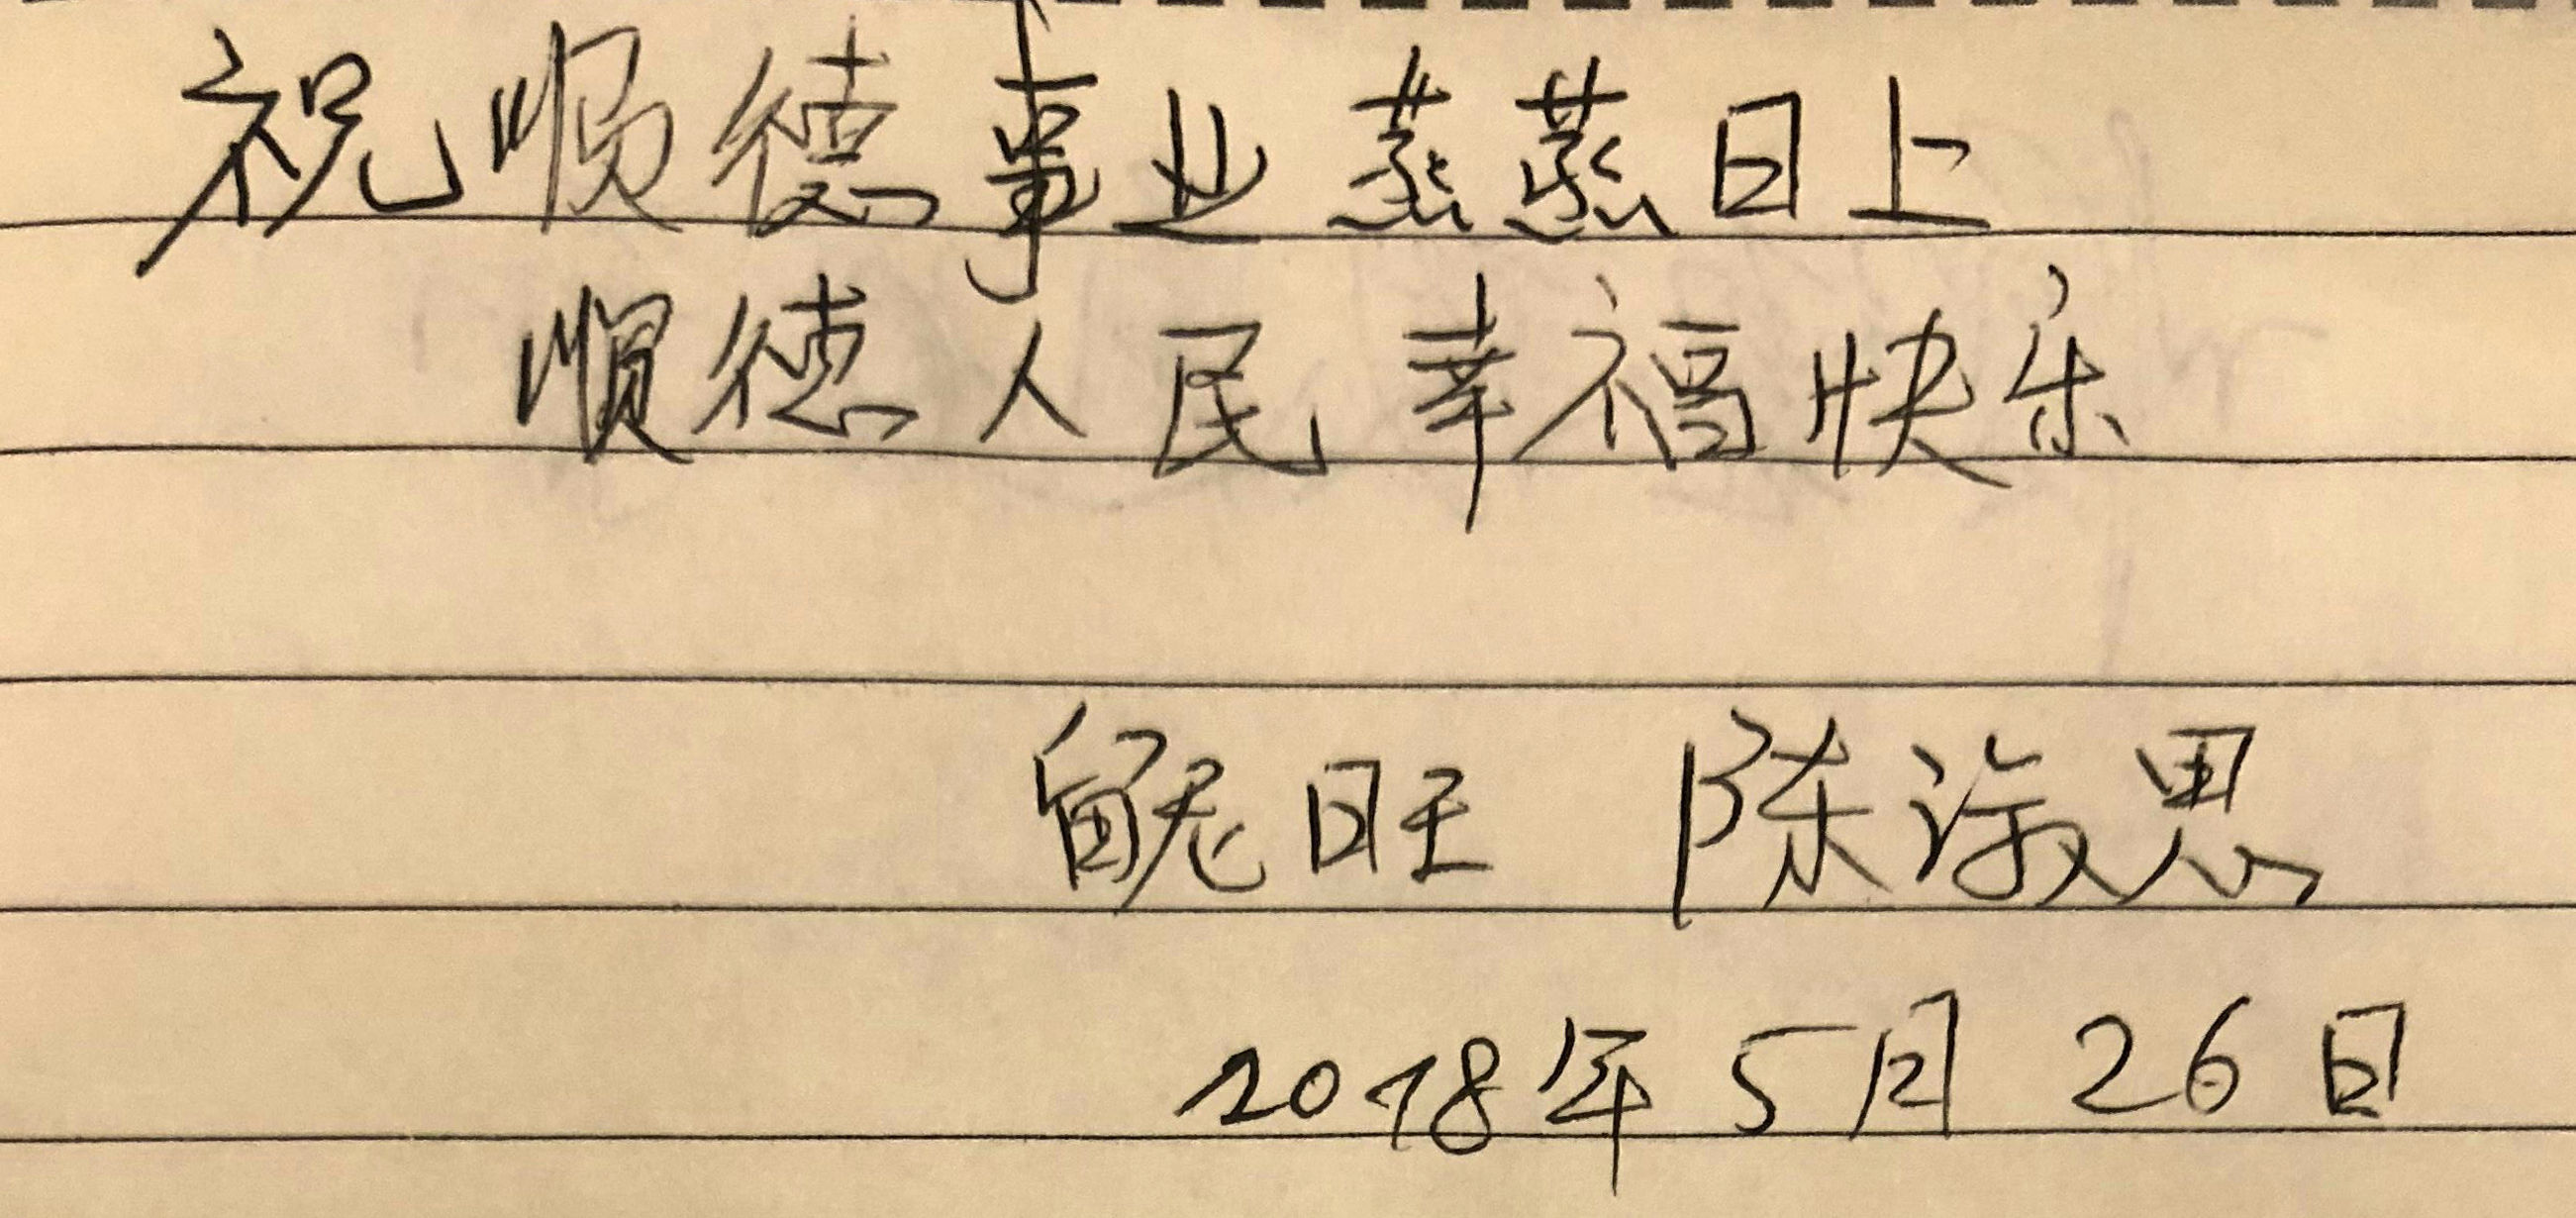 祝顺德事业蒸蒸日上
顺德人民幸福快乐
旺 陈思
2018年5月26日